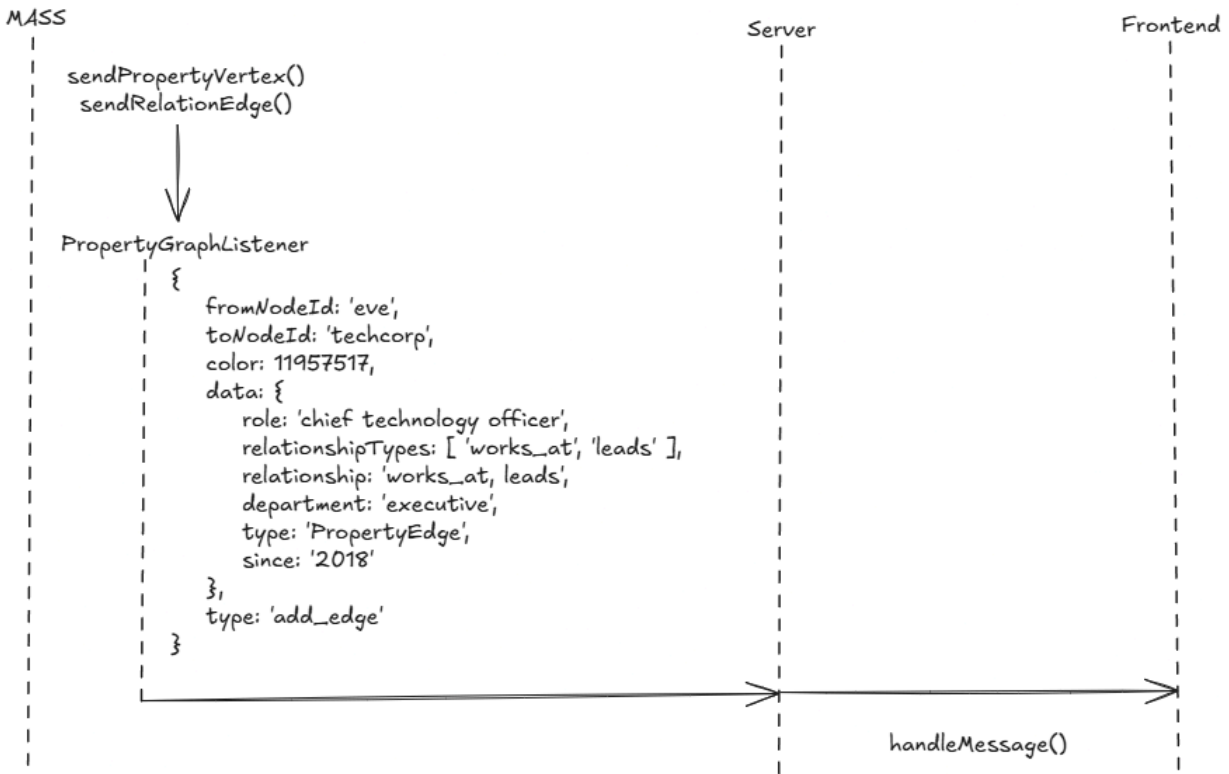 MASS
Server
Frontend
sendPropertyVertex()
sendRelationEdge()
PropertyGraphListener
{
fromNodeId: 'eve',
toNodeId: 'techcorp',
color: 11957517,
data: {
role: 'chief technology officer',
relationshipTypes: [ 'works_at', 'leads' ],
relationship: 'works_at, leads',
department: 'executive',
type: 'PropertyEdge',
since: '2018'
},
type: 'add_edge'
}
handleMessage()